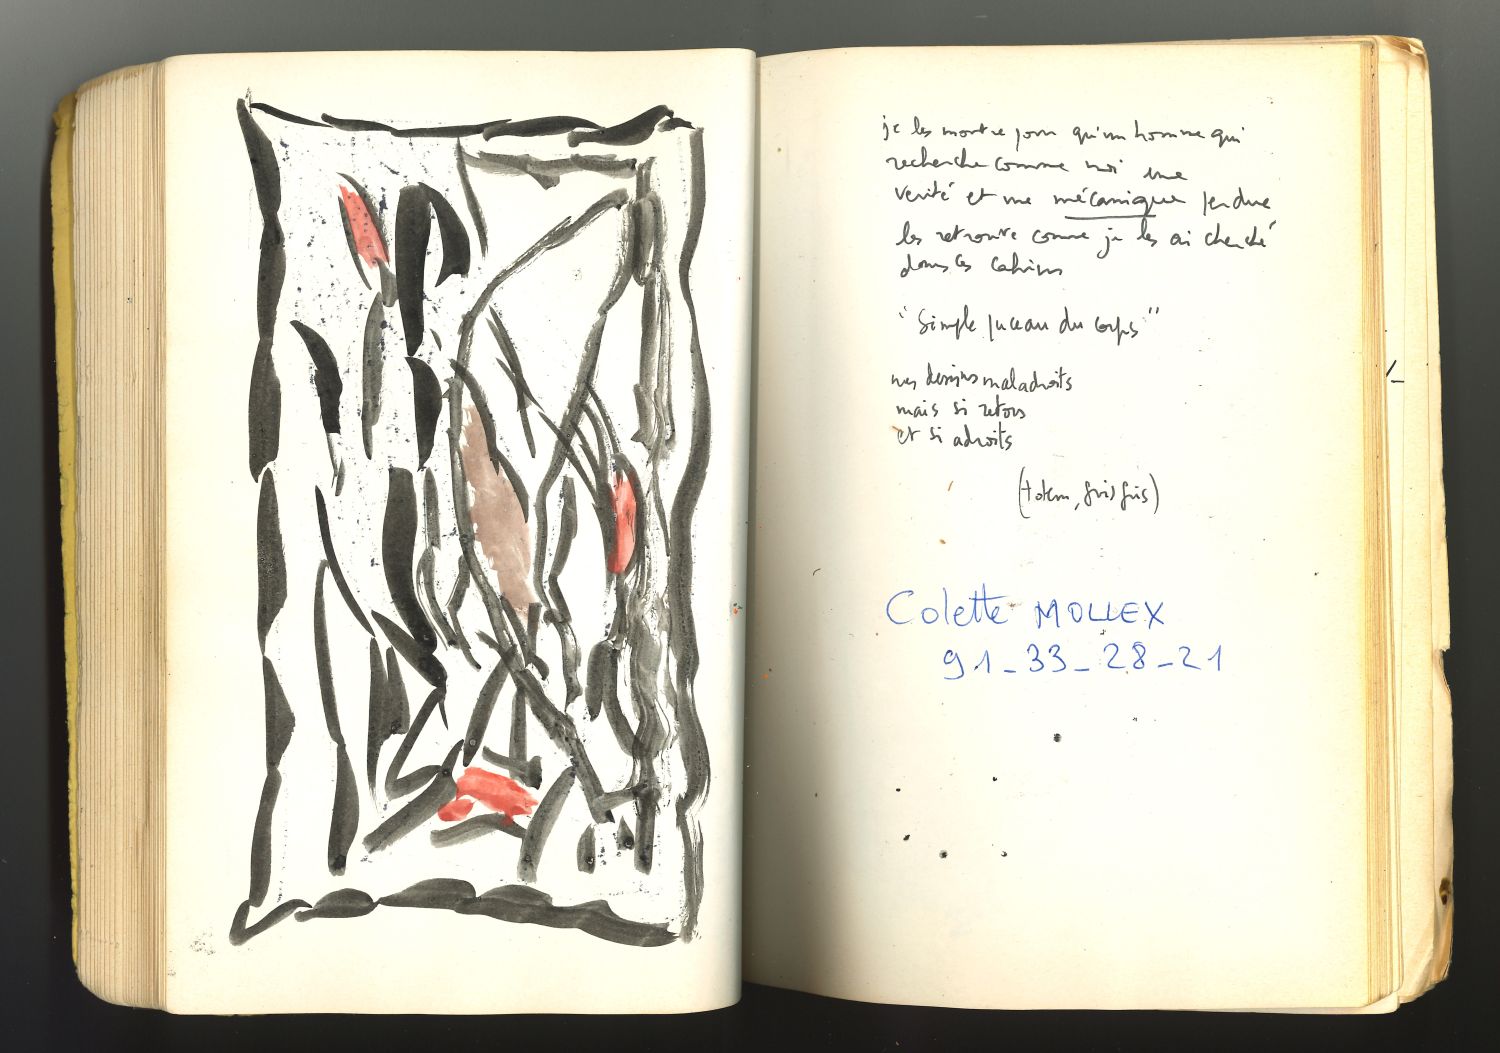 je les montre pour qu'un homme qui
recherche comme moi une
verité et une mécanique perdue
les retrouve comme je les ai cherché
dans ces cahiers
"Simple puceau du corps"
mes dessins maladroits
mais si retors
et si adroits
(totem, gris gris)
Colette MOLLEX
91_33_28_21